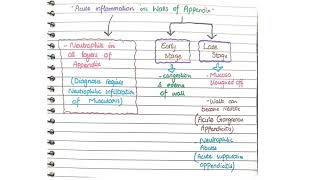 "Acute inflammation in Walls of Appendix"
- Neutrophils in all layers of Appendix
(Diagnosis require Neutrophilic infiltration of Muscularis)
Early Stage
- congestion & edema of wall
Late Stage
- Mucosa sloughed off
- Walls can become necrotic
(Acute Gangrenous Appendicitis)
- Neutrophilic Abscess
(Acute suppurative appendicitis)